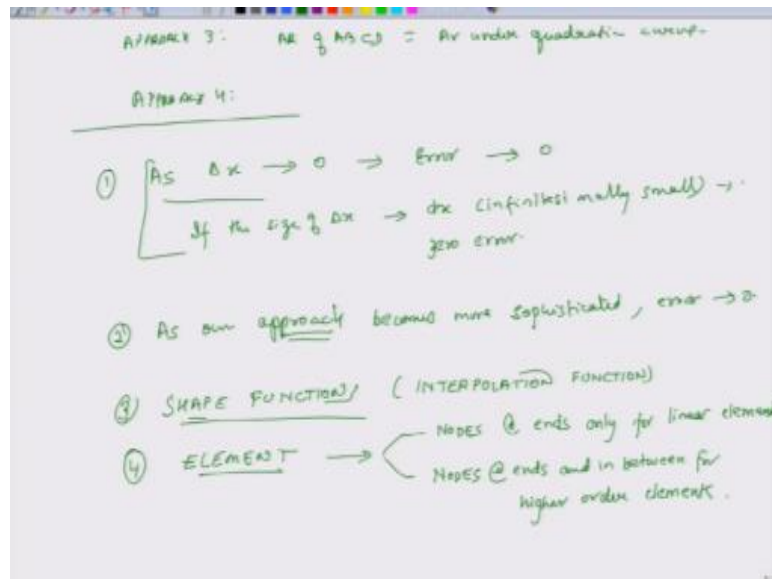 APPROACH 3: AR of ABCD = Ar under quadratic curve.
APPROACH 4:
① As Δx → 0 → Error → 0
If the size of Δx → dx (infinitesimally small) →
zero error.
② As our approach becomes more sophisticated, error → 0
③ SHAPE FUNCTION/ (INTERPOLATION FUNCTION)
④ ELEMENT → NODES @ ends only for linear element
NODES @ ends and in between for
higher order element.